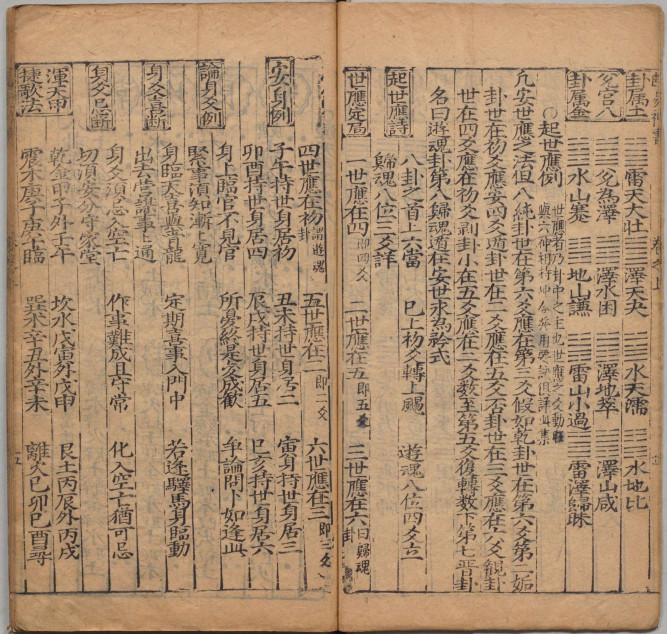 卦屬土 雷天大壯 澤天夬 水天濡 水地比
兌宮八 兌為澤 澤水困 澤地萃 澤山咸
卦屬金 水山蹇 地山謙 雷山小過 雷澤歸妹
○起世應例 世應者乃卦中之主也世應之爻動
凡安世應之法但八純卦世在第六爻應在第三爻假如乾卦世在第六爻第二姤
卦世在初爻應安四爻遁卦世在二爻應在五爻否卦世在三爻應在六爻觀卦
世在四爻應在初爻剥卦小在五爻應在二爻數至第五爻復轉數下第七晋卦
名曰遊魂卦第八歸魂通在安世永為衿式
起世應詩 八卦之首上六當 已上初爻轉上颺 遊魂八位四爻立
歸魂八位三爻詳
世應定局 一世應在四 即四爻 二世應在五 即五爻 三世應在六 曰歸魂卦
四世應在初 謂遊魂卦 五世應在二 即二爻 六世應在三 即三爻
安身例 子午持世身居初 丑未持世身居二 寅身持世身居三
卯酉持世身居四 辰戌持世身居五 巳亥持世身居六
論身爻例 身上臨官不見官 所身終是安成歡 争論問卜如逢此
緊事須知漸漸寬
身爻喜斷 身臨天喜與青龍 定期喜事入門中 若逢驛馬身臨動
出去営謀事事通
身爻忌斷 身爻須忌入空亡 作事難成且守常 化入空亡猶可忌
切須安分守家堂
渾天甲 乾金甲子外壬午 坎水戊寅外戊申 艮土丙辰外丙戌
捷歌法 震木庚子庚午臨 巽木辛丑外辛未 離火巳卯巳酉尋